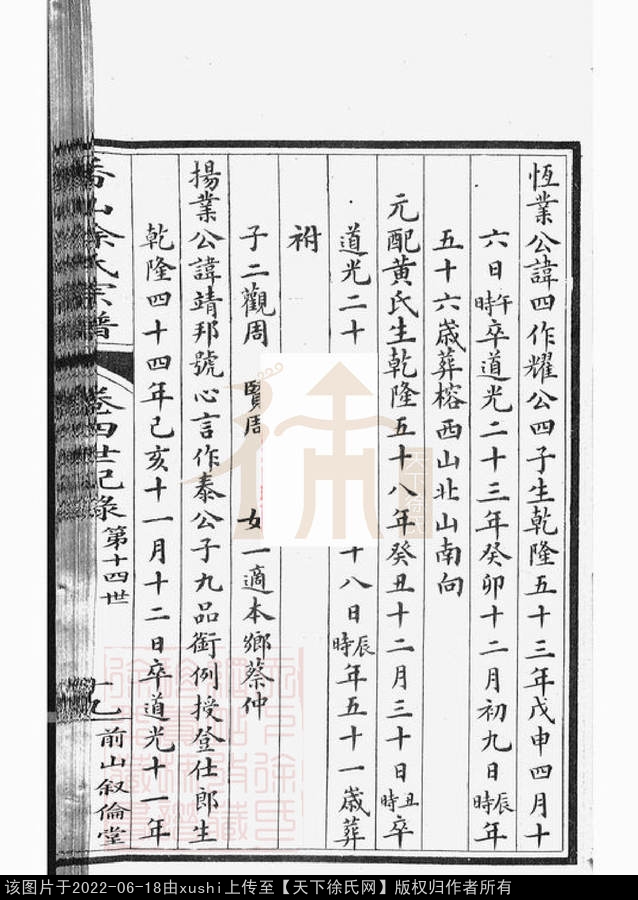 恆業公諱四作耀公四子生乾隆五十三年戊申四月十
六日午時卒道光二十三年癸卯十二月初九日辰時年
五十六歲葬榕西山北山南向
元配黃氏生乾隆五十八年癸丑十二月三十日丑時卒
道光二十 十八日辰時年五十一歲葬
祔
子二觀周 賢周 女一適本鄉蔡仲
揚業公諱靖邦號心言作泰公子九品銜例授登仕郎生
乾隆四十四年己亥十一月十二日卒道光十一年
香山徐氏宗譜
卷四世紀錄 第十四世
前山叙倫堂
徐
天下徐氏
该图片于2022-06-18由xushi上传至【天下徐氏网】版权归作者所有